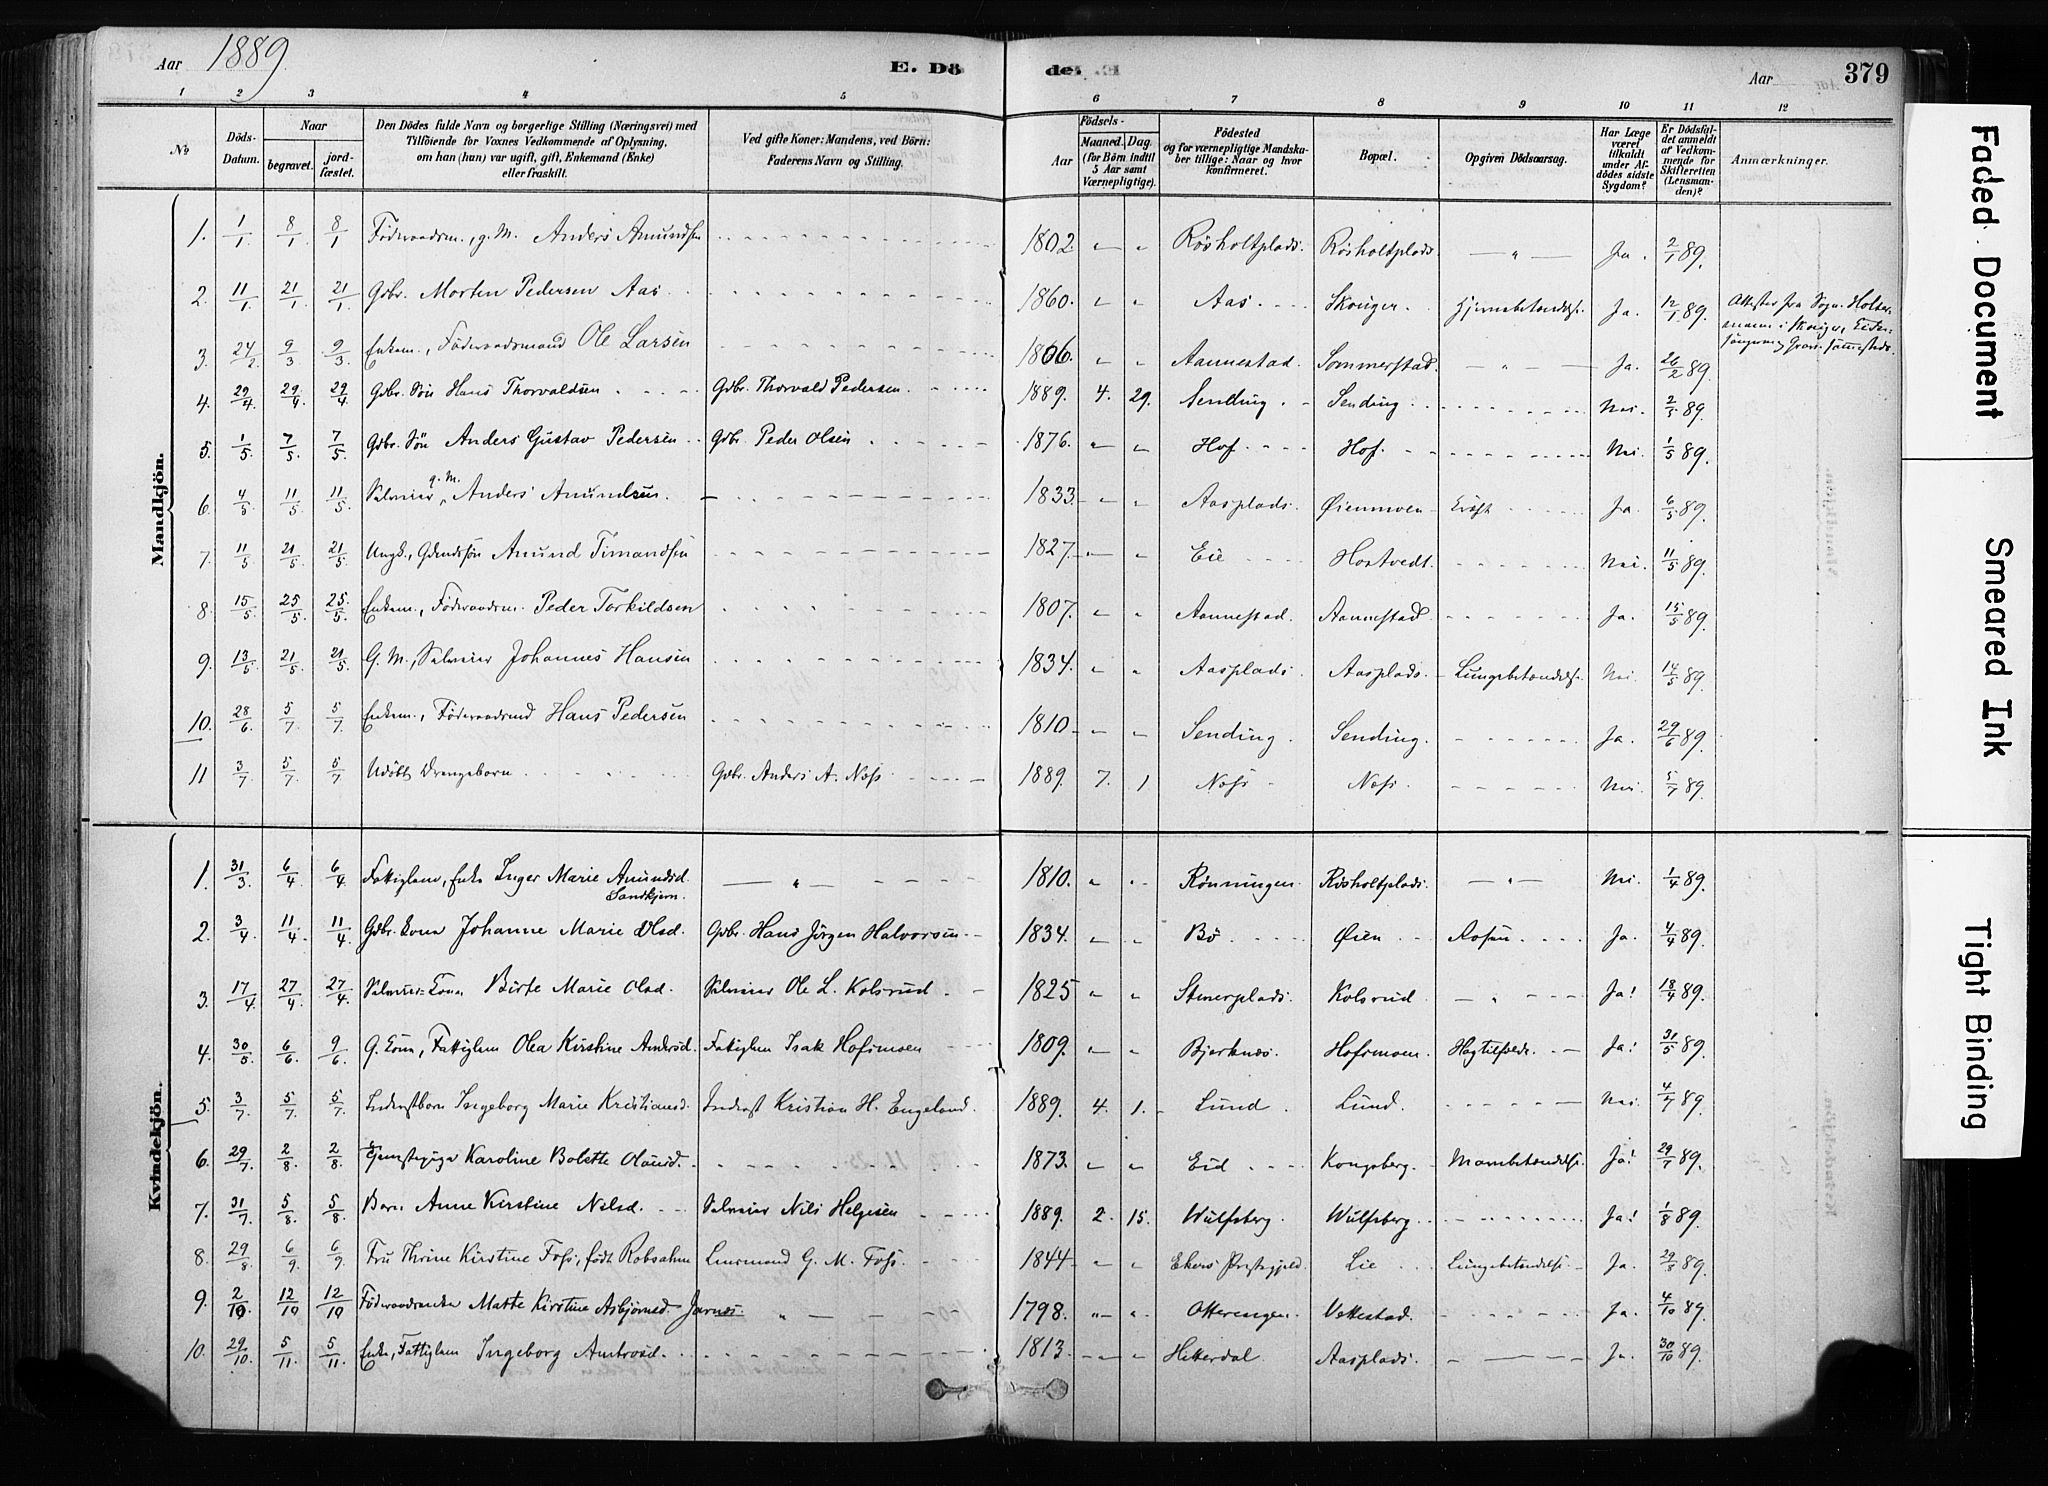 Aar 1889. E. Dö de. Aar 379
1 2 3 4 5 6 7 8 9 10 11 12
№ Döds-Datum. Naar begravet. jord-fæstet. Den Dödes fulde Navn og borgerlige Stilling (Næringsvei) med Tilföiende for Voxnes Vedkommende af Oplysning, om han (hun) var ugift, gift, Enkemand (Enke) eller fraskilt. Ved gifte Koner: Mandens, ved Börn: Faderens Navn og Stilling. Födsels- Aar Maaned. Dag. (for Börn indtil 5 Aar samt Værnepligtige). Födested og for værnepligtige Mandskaber tillige: Naar og hvor konfirmeret. Bopæl. Opgiven Dödsaarsag. Har Læge været tilkaldt under Afdödes sidste Sygdom? Er Dödsfaldet anmeldt af Vedkommende for Skifteretten (Lensmanden)? Anmærkninger.
Mandkjön.
1. 1/1 8/1 8/1 Föderaadsm., g. M. Anders Amundsen 1802 " " Rösholtplads. Rösholtplads. — " — Ja. 2/1 89.
2. 11/1 21/1 21/1 Gdbr. Morten Pedersen Aas 1860. " " Aas Skouger Hjernebetændelse. Ja. 12/1 89. Attester fra Sogn.
3. 24/2 9/3 9/3 Enkem., Föderaadsmand Ole Larsen 1806. " " Aannestad. Sommerstad. — " — Ja. 26/2 89.
4. 29/4 29/4 29/4 Gdbr. Sön Hans Thorvaldsen Gdbr. Thorvald Pedersen 1889. 4. 29. Sending Sending Nei. 2/5 89.
5. 1/5 7/5 7/5 Gdbr. Sön Anders Gustav Pedersen Gdbr. Peder Olsen 1876. " " Hof Hof. Nei. 1/5 89.
6. 4/5 11/5 11/5 Selveier, g. M. Anders Amundsen. 1833. " " Aasplads. Øienmoen Ja. 6/5 89.
7. 11/5 21/5 21/5 Ungk., Amund Timandsen 1827. " " Eie Hostvedt. Nei. 11/5 89.
8. 15/5 25/5 25/5 Enkem., Föderaadsm. Peder Torkildsen 1807. " " Aannestad. Aannestad. Ja. 15/5 89.
9. 13/5 21/5 21/5 G. M., Selveier Johannes Hansen 1834. " " Aasplads Aasplads. Lungebetændelse. Nei. 14/5 89.
10. 28/6 5/7 5/7 Enkem., Föderaadsmd Hans Pedersen 1810 " " Sending. Sending. Ja. 29/6 89.
11 3/7 5/7 5/7 Udöbt Drengebarn Gdbr. Anders A. Foss 1889. 7. 1. Foss Foss. Nei. 5/7 89.
Kvindekjön.
1. 31/3 6/4 6/4 Fattiglem, Enke Inger Marie Amundsd. Sandkjern. — " — 1810. " " Rönningen Rösholtplads. — " — Nei. 1/4 89.
2. 3/4 11/4 11/4 Gdbr. Kona Johanne Marie Olsd. Gdbr. Hans Jörgen Halvorsen 1834. " " Bö Øien Rosen Ja. 4/4 89.
3. 17/4 27/4 27/4 Selveier-Kona Birte Marie Olsd. Selveier Ole L. Kolsrud 1825 " " Stenerplads. Kolsrud — " — Ja! 18/4 89.
4. 30/5 6/6 9/6 G. Kona, Fattiglem Olea Kirstine Andersd. Fattiglem Isak Hofsmoen 1809. " " Bjerknæs. Hofsmoen. Ja! 31/5 89.
5. 3/7 5/7 5/7 Inderstbarn Ingeborg Marie Kristiansd. Inderst Kristian H. Engelund. 1889. 4. 1. Lund. Lund. Nei. 4/7 89.
6. 29/7 2/8 2/8 Tjenestepige Karoline Bolette Olausd. 1873. " " Eid Kongsberg. Mavebetændelse. Ja! 29/7 89.
7. 31/7 5/8 5/8 Barn Anne Kirstine Nilsd. Selveier Nils Helgesen 1889. 2. 15. Wulfsberg. Wulfsberg Ja! 1/8 89.
8. 29/8 6/9 6/9. Fru Thrine Kirstine Foss, födt Robsahm Lensmand G. M. Foss. 1844 " " Ekers Præstegjeld. Lie Lungebetændelse Ja. 29/8 89.
9. 2/10 12/10 12/10 Föderaadsenke Matte Kirstine Asbjörnsd. Jarnes. " 1798. " " Otterengen. Vettestad. Ja. 4/10 89.
10. 29/10 5/11 5/11. Enke, Fattiglem Ingeborg Ambrosd. 1813. " " Hitterdal Aasplads. Ja. 30/10 89.
Faded Document
Smeared Ink
Tight Binding